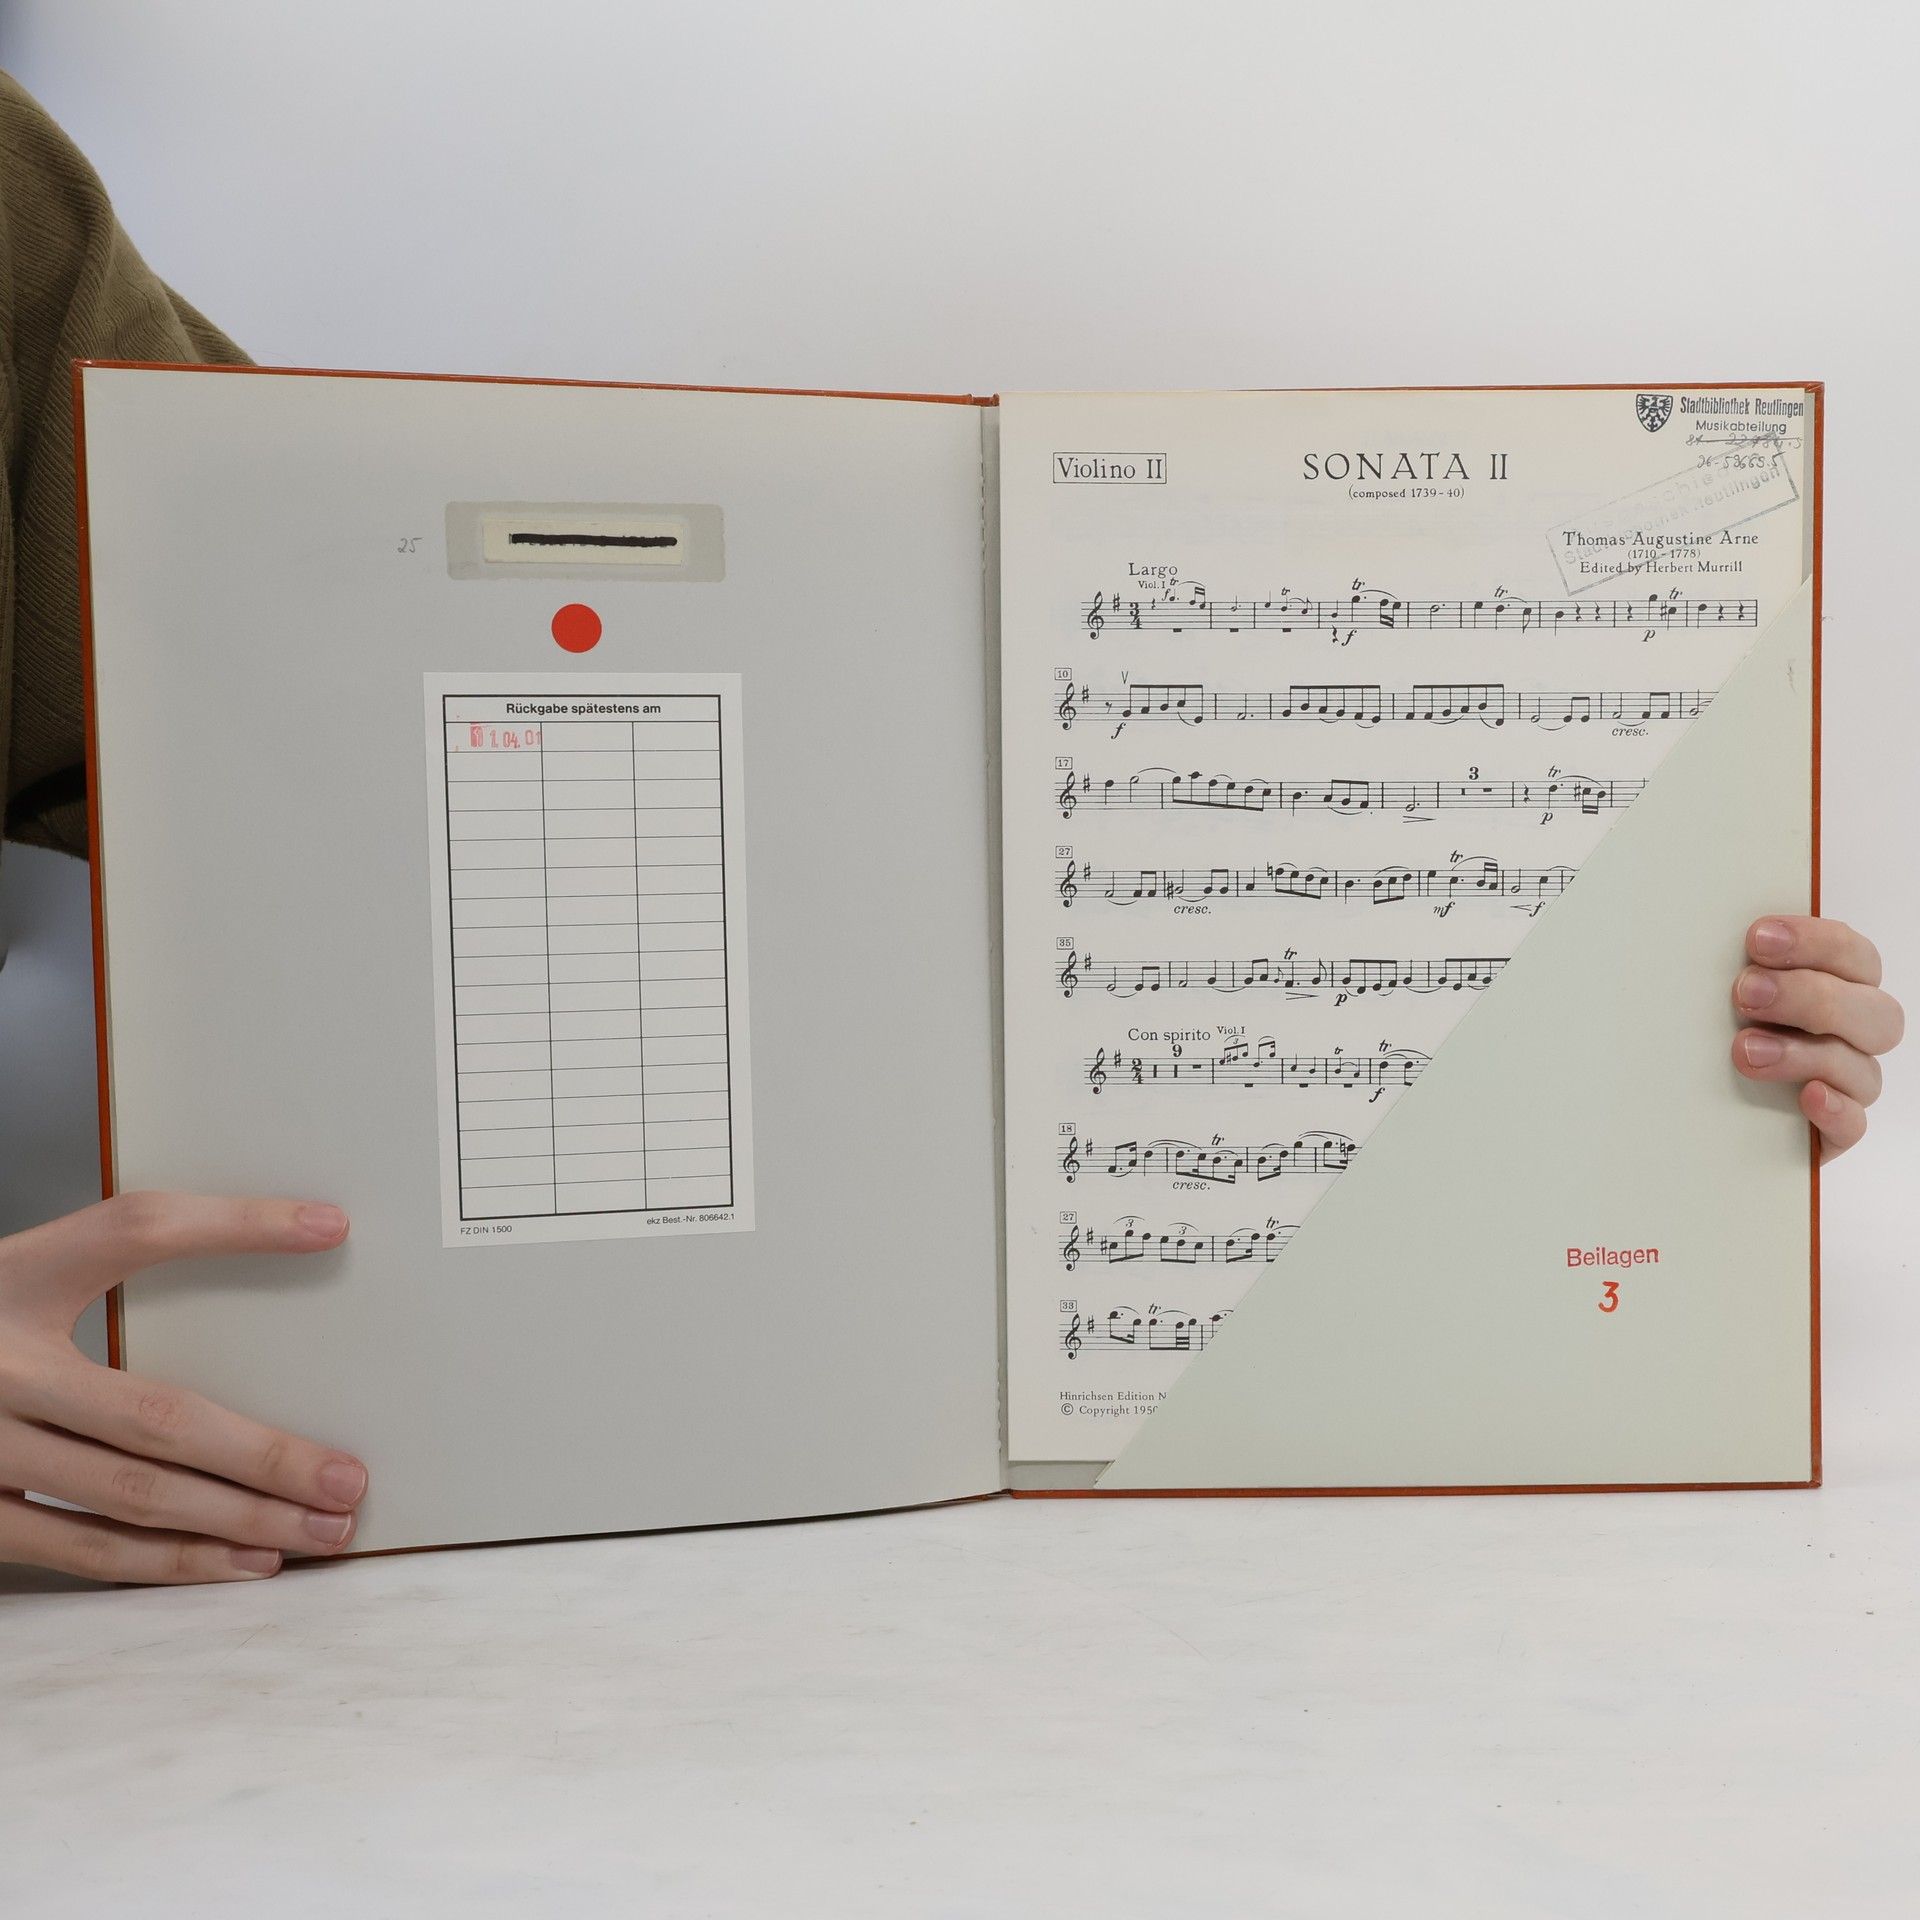 25
Rückgabe spätestens am
1. 04. 01
FZ DIN 1500
ekz Best.-Nr. 806642.1
Stadtbibliothek Reutlingen
Musikabteilung
Violino II
SONATA II
(composed 1739-40)
Stadtbibliothek Reutlingen
Thomas Augustine Arne
(1710 - 1778)
Edited by Herbert Murrill
Largo
Viol. I
tr
f
tr
tr
f
tr
tr
p
10
V
f
cresc.
17
3
tr
p
27
cresc.
tr
mf
f
35
tr
p
Con spirito
Viol. I
9
3
2
4
tr
tr
f
18
tr
cresc.
27
3
3
tr
33
tr
Hinrichsen Edition N
© Copyright 1950
Beilagen
3